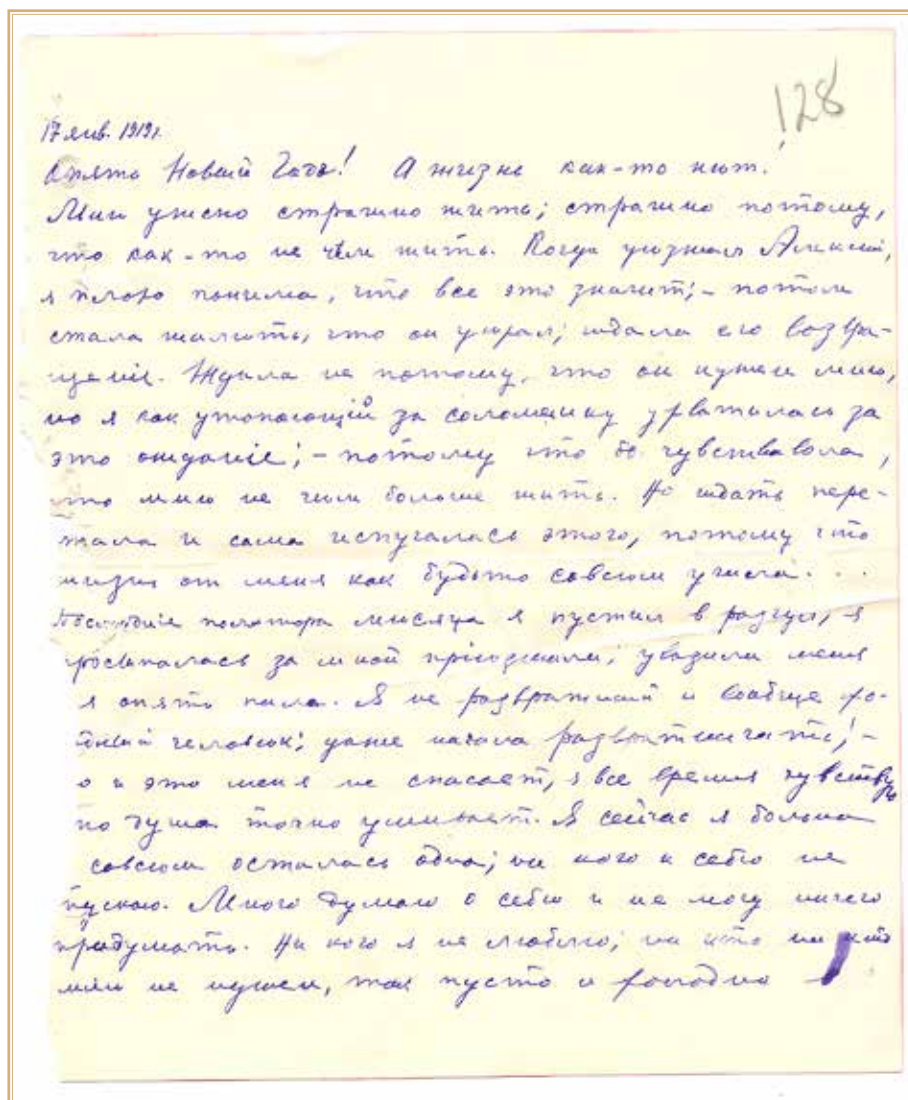 128
17 янв. 1919г.
Опять Новый Годъ! А жизни как-то нѣт.
Мнѣ ужасно страшно жить; страшно потому,
что как-то не чѣм жить. Когда уѣзжал Алексѣй,
я плохо понимала, что все это значит; - потом
стала жалѣть, что он уѣхал; ждала его возвра-
щенiе. Ждала не потому, что он нужен мнѣ,
но я как утопающiй за соломенку ухватилась за
это ожиданiе; - потому что чувствовала,
что мнѣ не чѣм больше жить. Но ждать пере-
стала и сама испугалась этого, потому что
жизнь от меня как будьто совсѣм ушла. . .
Послѣднiе полтора мѣсяца я в разгул, я
просыпалась за мной прiѣзжали, увозили меня
я опять пила. Я не развратный и вообще хо-
человѣк; даже начала развратничать; -
о и это меня не спасает, я все время чувствую
что душа точно умирает. Я сейчас я больна
совсѣм осталась одна; ни кого к себѣ не
пускаю. Много думаю о себѣ и не могу ничего
придумать. Ни кого я не люблю; ни кто ни
мнѣ не нужен, так пусто и холодно